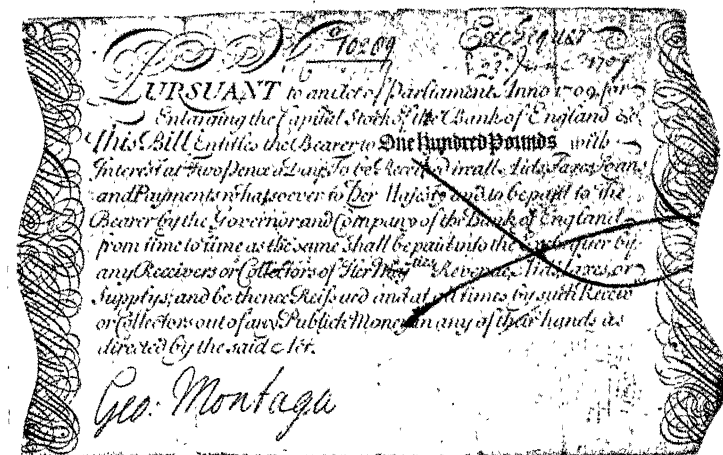 No 10289 Exchequer
23 June 1709
PURSUANT to an Act of Parliament Anno 1709 for
Enlarging the Capital Stock of the Bank of England &c
this Bill Entitles the Bearer to One Hundred Pounds with
Interest at Two Pence a Day To be Received in all Aids Taxes Loans
and Payments whatsoever to Her Majesty and to be paid to the
Bearer by the Governor and Company of the Bank of England
from time to time as the same shall be paid into the Exchequer by
any Receivers or Collectors of Her Majties Revenue, Aids, Taxes, or
Supplys; and be thence Reissued and at all times by such Receivrs
or Collectors out of any Publick Money in any of their hands as
directed by the said Act.
Geo: Montagu